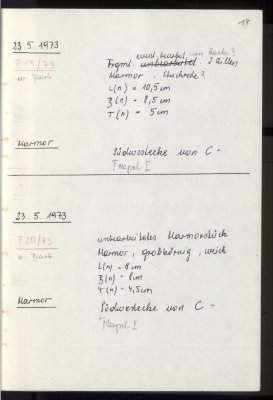 17
23.5.1973
event. bearbeit, von Basis?
P 19/73
Fragm. unbearbeitet. 2 Rillen
w. Bearb.
Marmor, Stuckreste?
L(n) = 10,5 cm
B(n) = 8,5 cm
T(n) = 5 cm
Marmor
Südwestecke von C -
Tempel I
23.5.1973
P 20/73
unbearbeitetes Marmorstück
w. Bearb.
Marmor, grobkörnig, weich
L(n) = 8 cm
B(n) = 8 cm
T(n) = 4,5 cm
Marmor
Südwestecke von C -
Tempel I